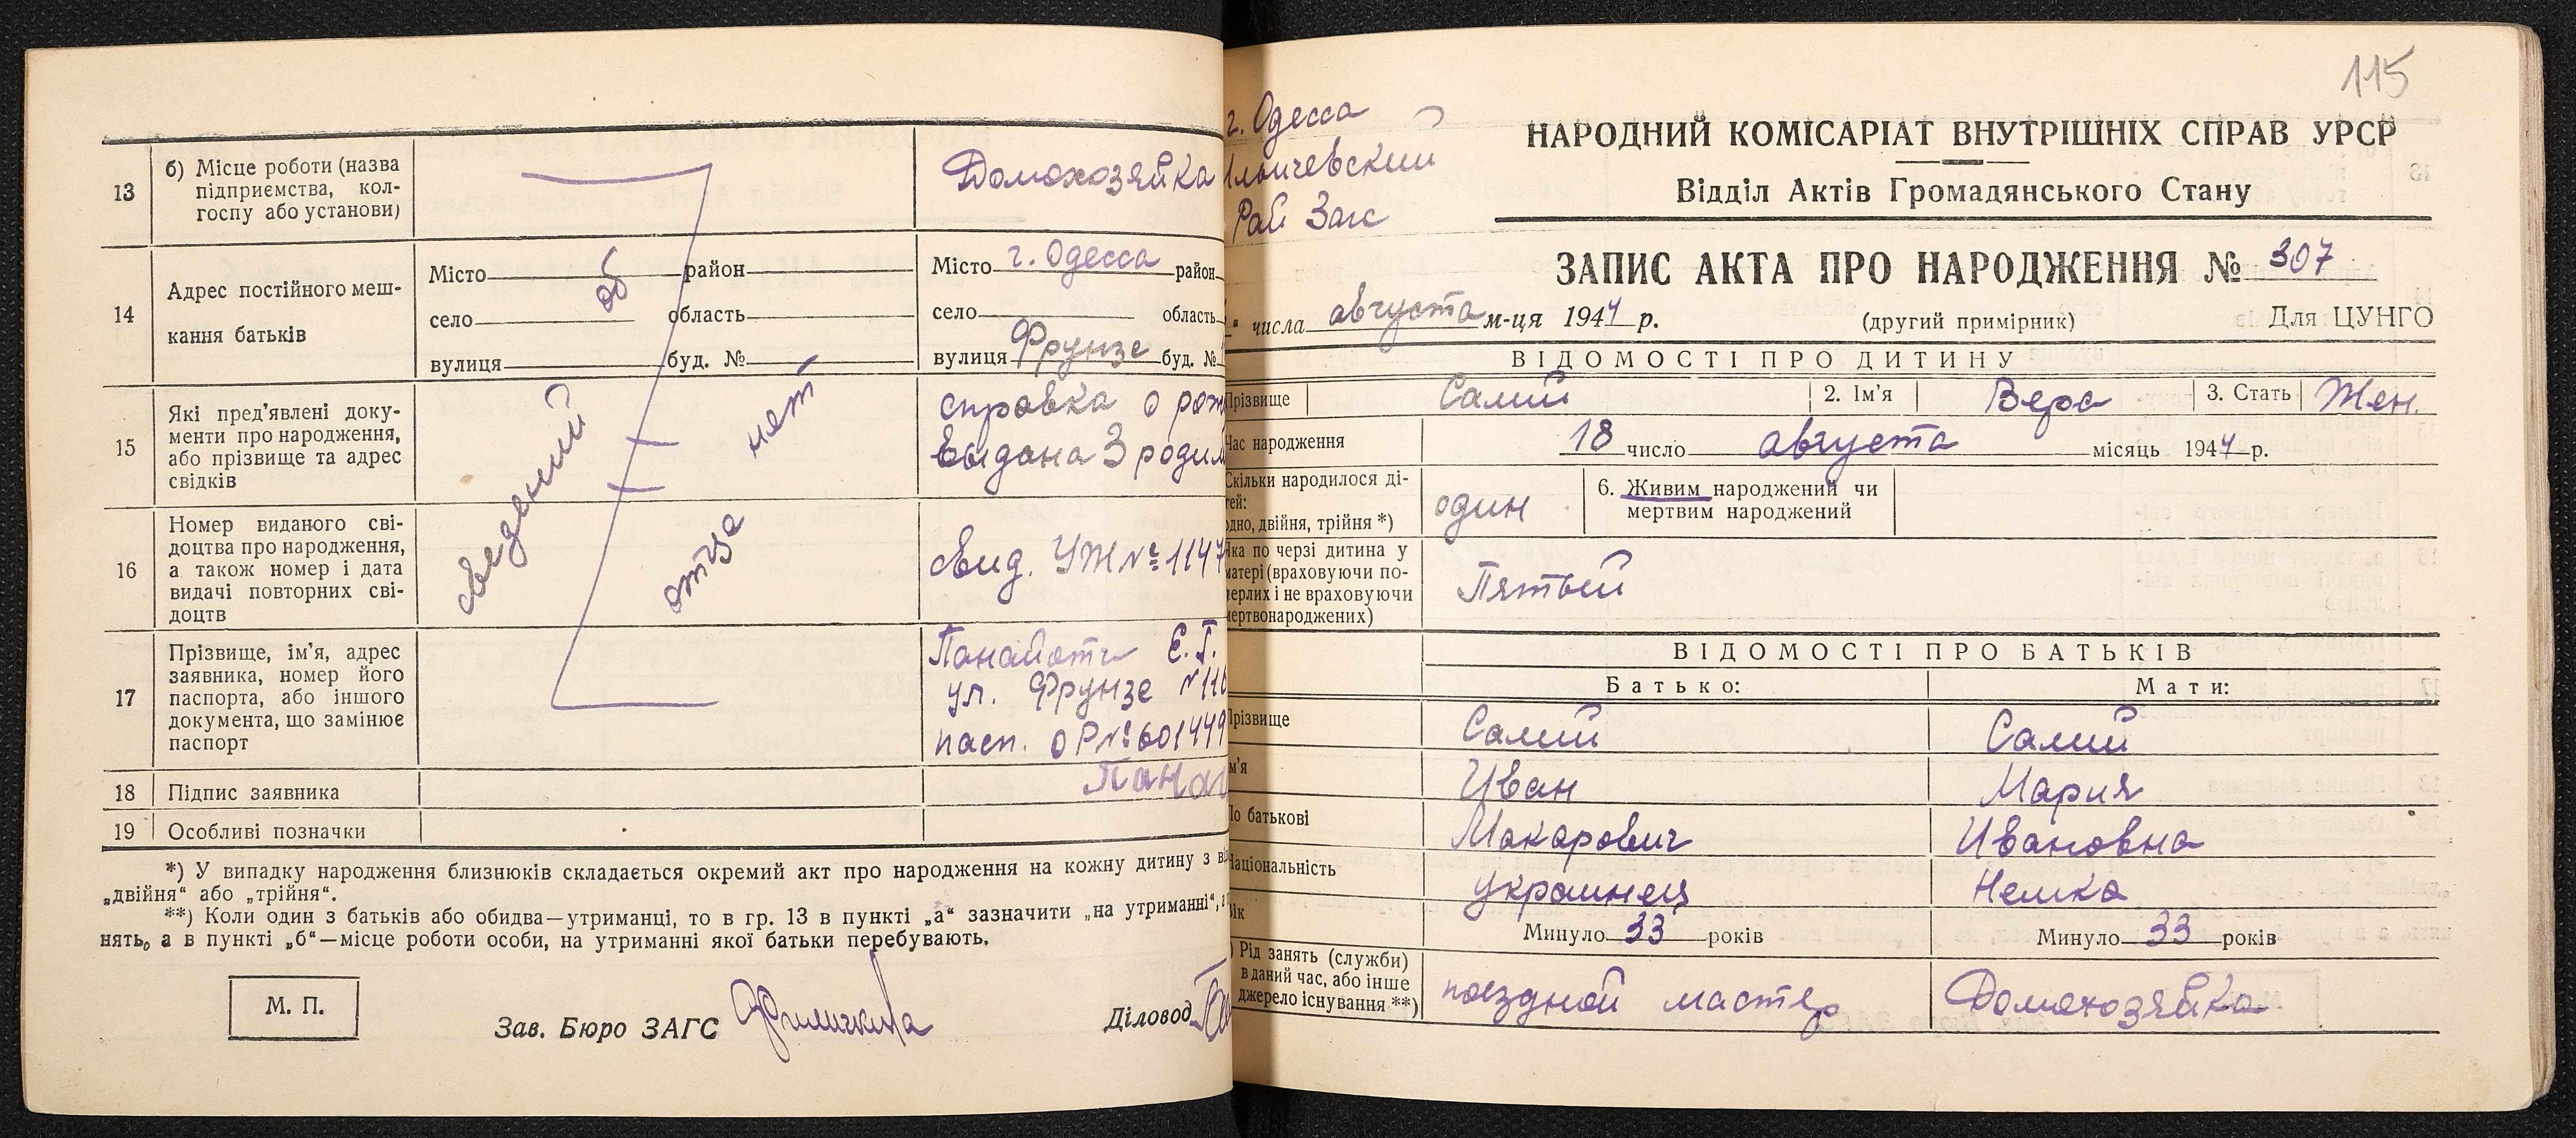 13
б) Місце роботи (назва
підприємства, кол-
госпу або установи)
Домохозяйка
14
Адрес постійного меш-
кання батьків
Місто район
село область
вулиця буд. №
Місто г. Одесса район
село область
вулиця Фрунзе буд. №
сведений об отце нет
15
Які пред'явлені доку-
менти про народження,
або прізвище та адрес
свідків
справка о рож
Выдана 3 родил
16
Номер виданого сві-
доцтва про народження,
а також номер і дата
видачі повторних сві-
доцтв
Свид. УЖ № 1147
17
Прізвище, ім'я, адрес
заявника, номер його
паспорта, або іншого
документа, що замінює
паспорт
Панайоти Е. Г.
ул. Фрунзе № 116
пасп. ОР № 601449
18 Підпис заявника
Панай
19 Особливі позначки
*) У випадку народження близнюків складається окремий акт про народження на кожну дитину з
„двійня“ або „трійня“.
**) Коли один з батьків або обидва—утриманці, то в гр. 13 в пункті „а“ зазначити „на утриманні“,
нять, а в пункті „б“—місце роботи особи, на утриманні якої батьки перебувають.
М. П.
Зав. Бюро ЗАГС
Діловод
115
г. Одесса
Ильичевский
Рай Загс
НАРОДНИЙ КОМІСАРІАТ ВНУТРІШНІХ СПРАВ УРСР
Відділ Актів Громадянського Стану
ЗАПИС АКТА ПРО НАРОДЖЕННЯ № 307
“ числа августа м-ця 1944 р. (другий примірник) Для ЦУНГО
ВІДОМОСТІ ПРО ДИТИНУ
Прізвище Салий 2. Ім'я Вера 3. Стать Жен.
Час народження 18 число августа місяць 1944 р.
Скільки народилося ді-
тей:
одно, двійня, трійня *)
один
6. Живим народжений чи
мертвим народжений
Яка по черзі дитина у
матері (враховуючи по-
мерлих і не враховуючи
мертвонароджених)
Пятый
ВІДОМОСТІ ПРО БАТЬКІВ
Батько: Мати:
Прізвище Салий Салий
Ім'я Иван Мария
По батькові Макарович Ивановна
Національність украинец Немка
Вік Минуло 33 років Минуло 33 років
) Рід занять (служби)
в даний час, або інше
джерело існування **)
поездной мастер Домохозяйка